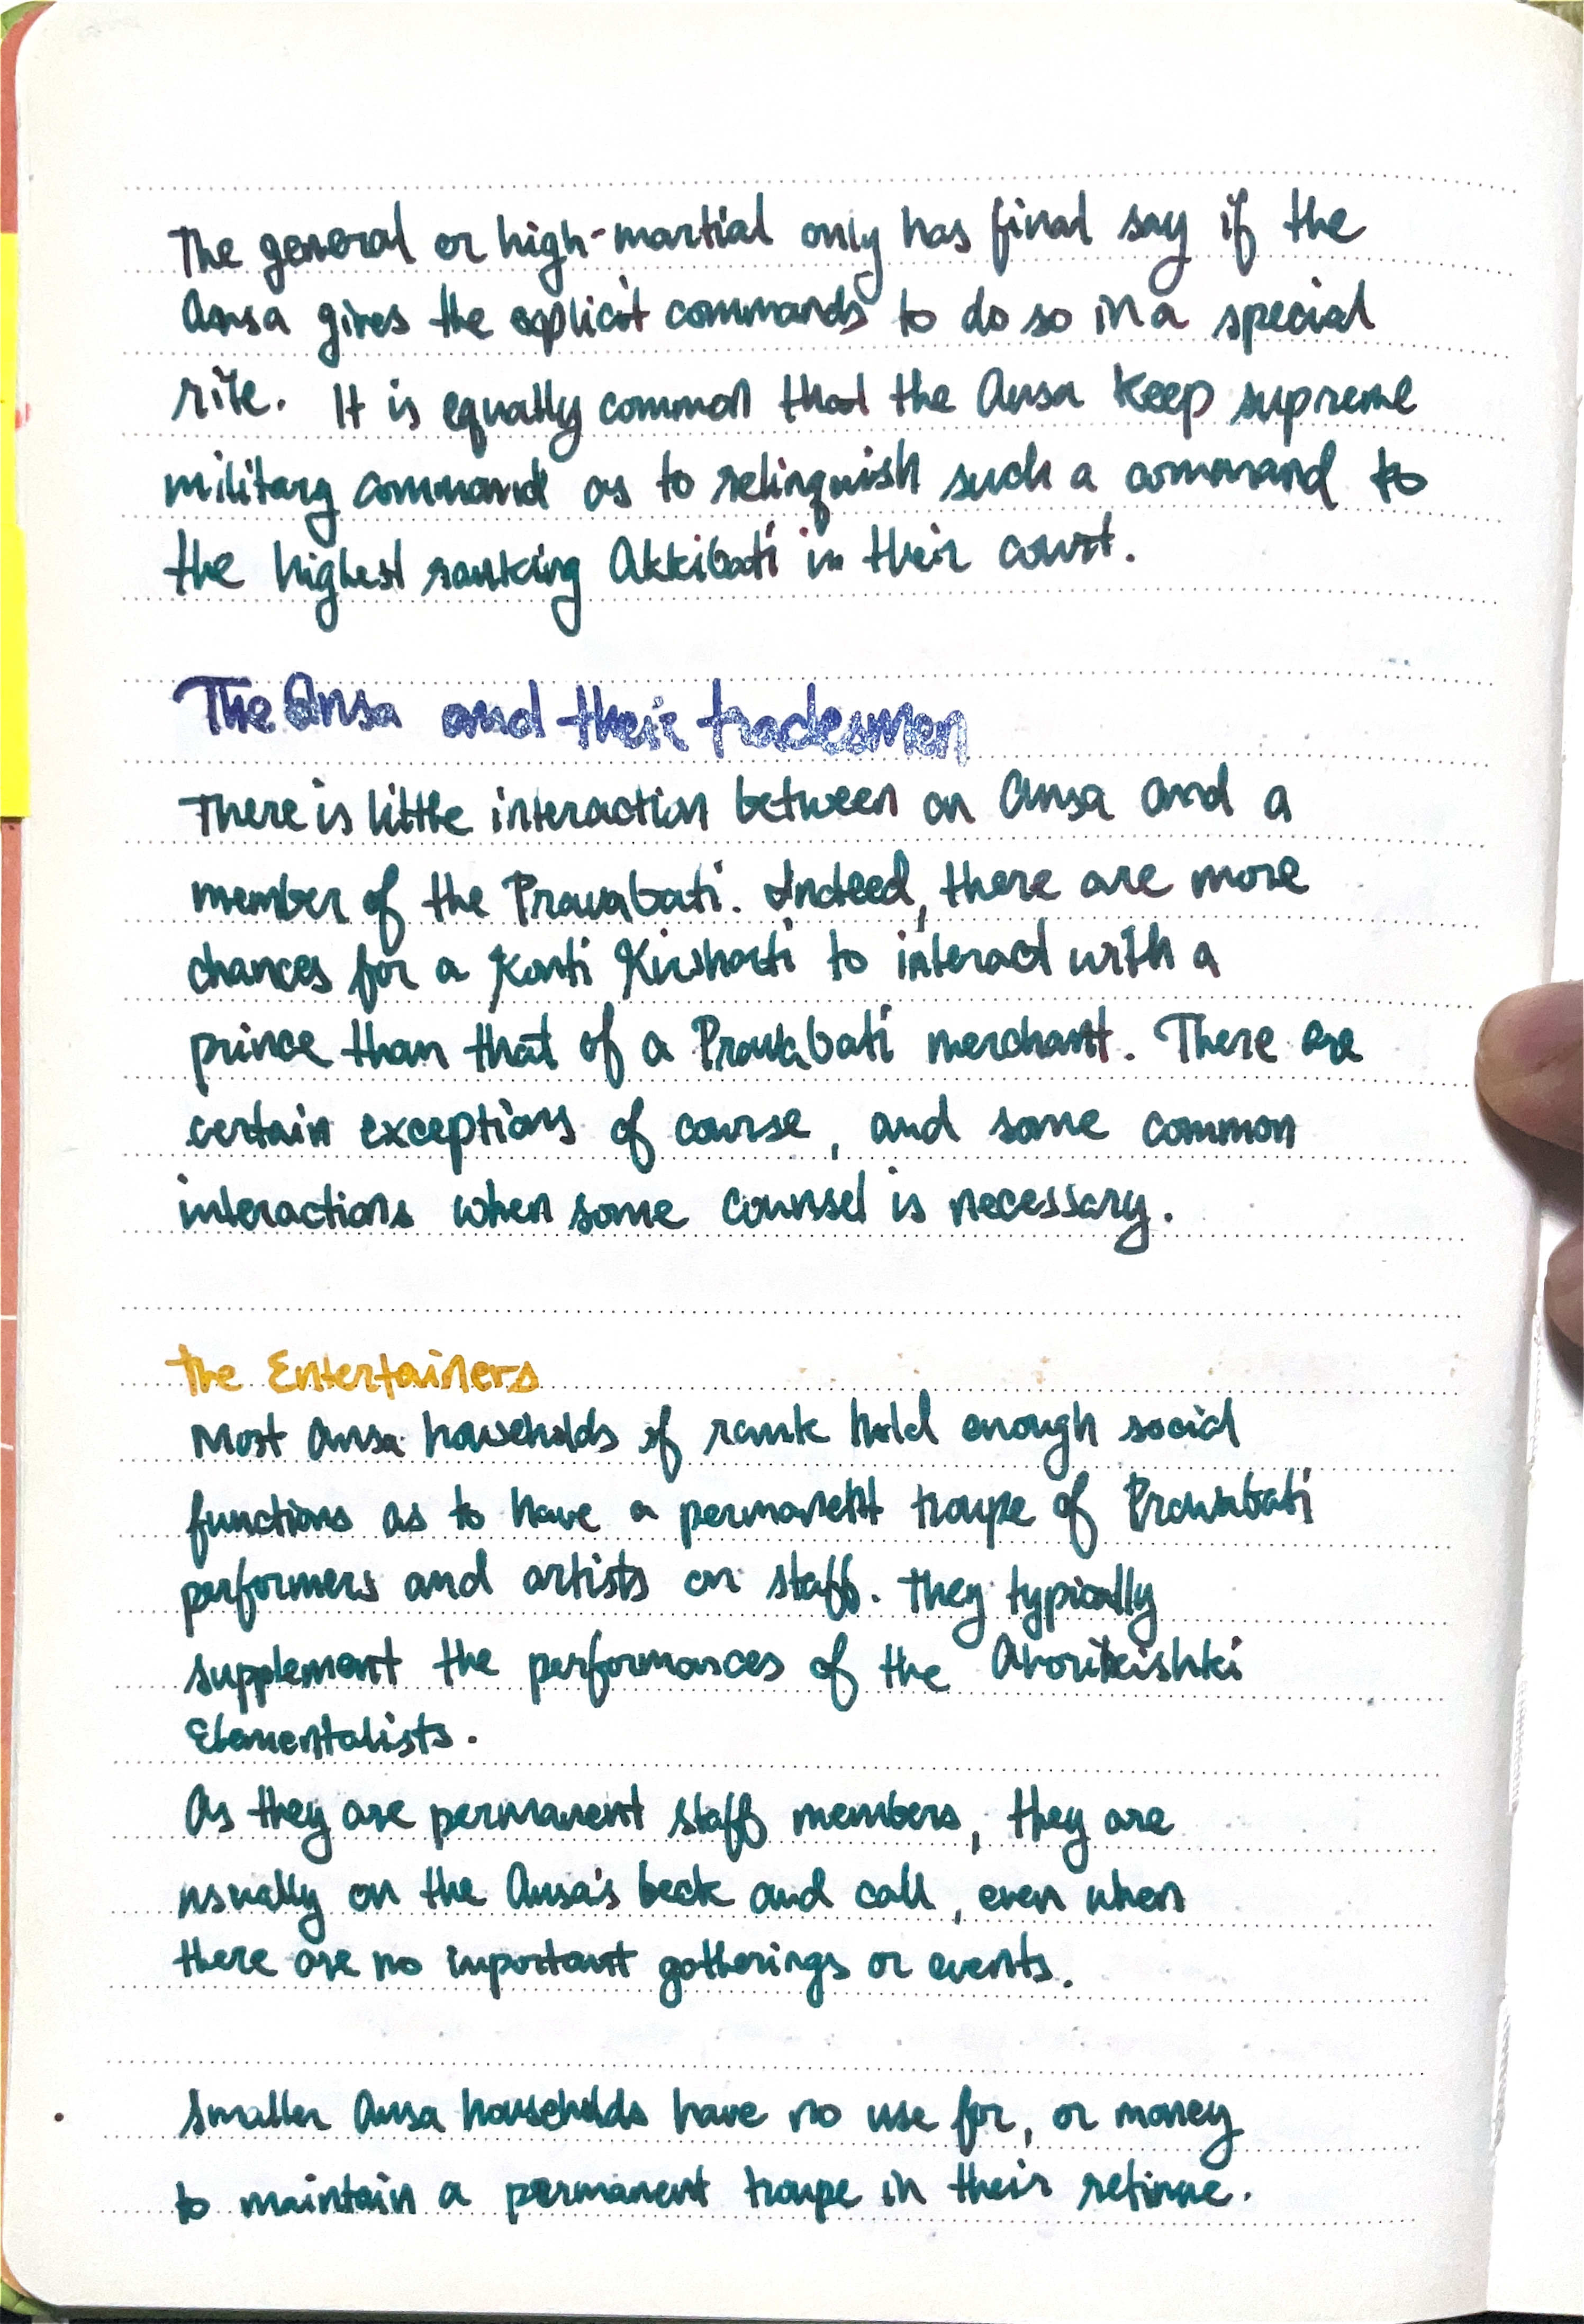 The general or high-martial only has final say if the
Ansa gives the explicit commands to do so in a special
rite. It is equally common that the Ansa keep supreme
military command as to relinquish such a command to
the highest ranking Akkibati in their court.
The Ansa and their tradesmen
There is little interaction between an Ansa and a
member of the Pravabati. Indeed, there are more
chances for a Konti to interact with a
prince than that of a Pravabati merchant. There are
certain exceptions of course, and some common
interactions when some counsel is necessary.
The Entertainers
Most Ansa households of rank hold enough social
functions as to have a permanent troupe of Pravabati
performers and artists on staff. They typically
supplement the performances of the
Elementalists.
As they are permanent staff members, they are
usually on the Ansa's beck and call, even when
there are no important gatherings or events.
Smaller Ansa households have no use for, or money
to maintain a permanent troupe in their retinue.